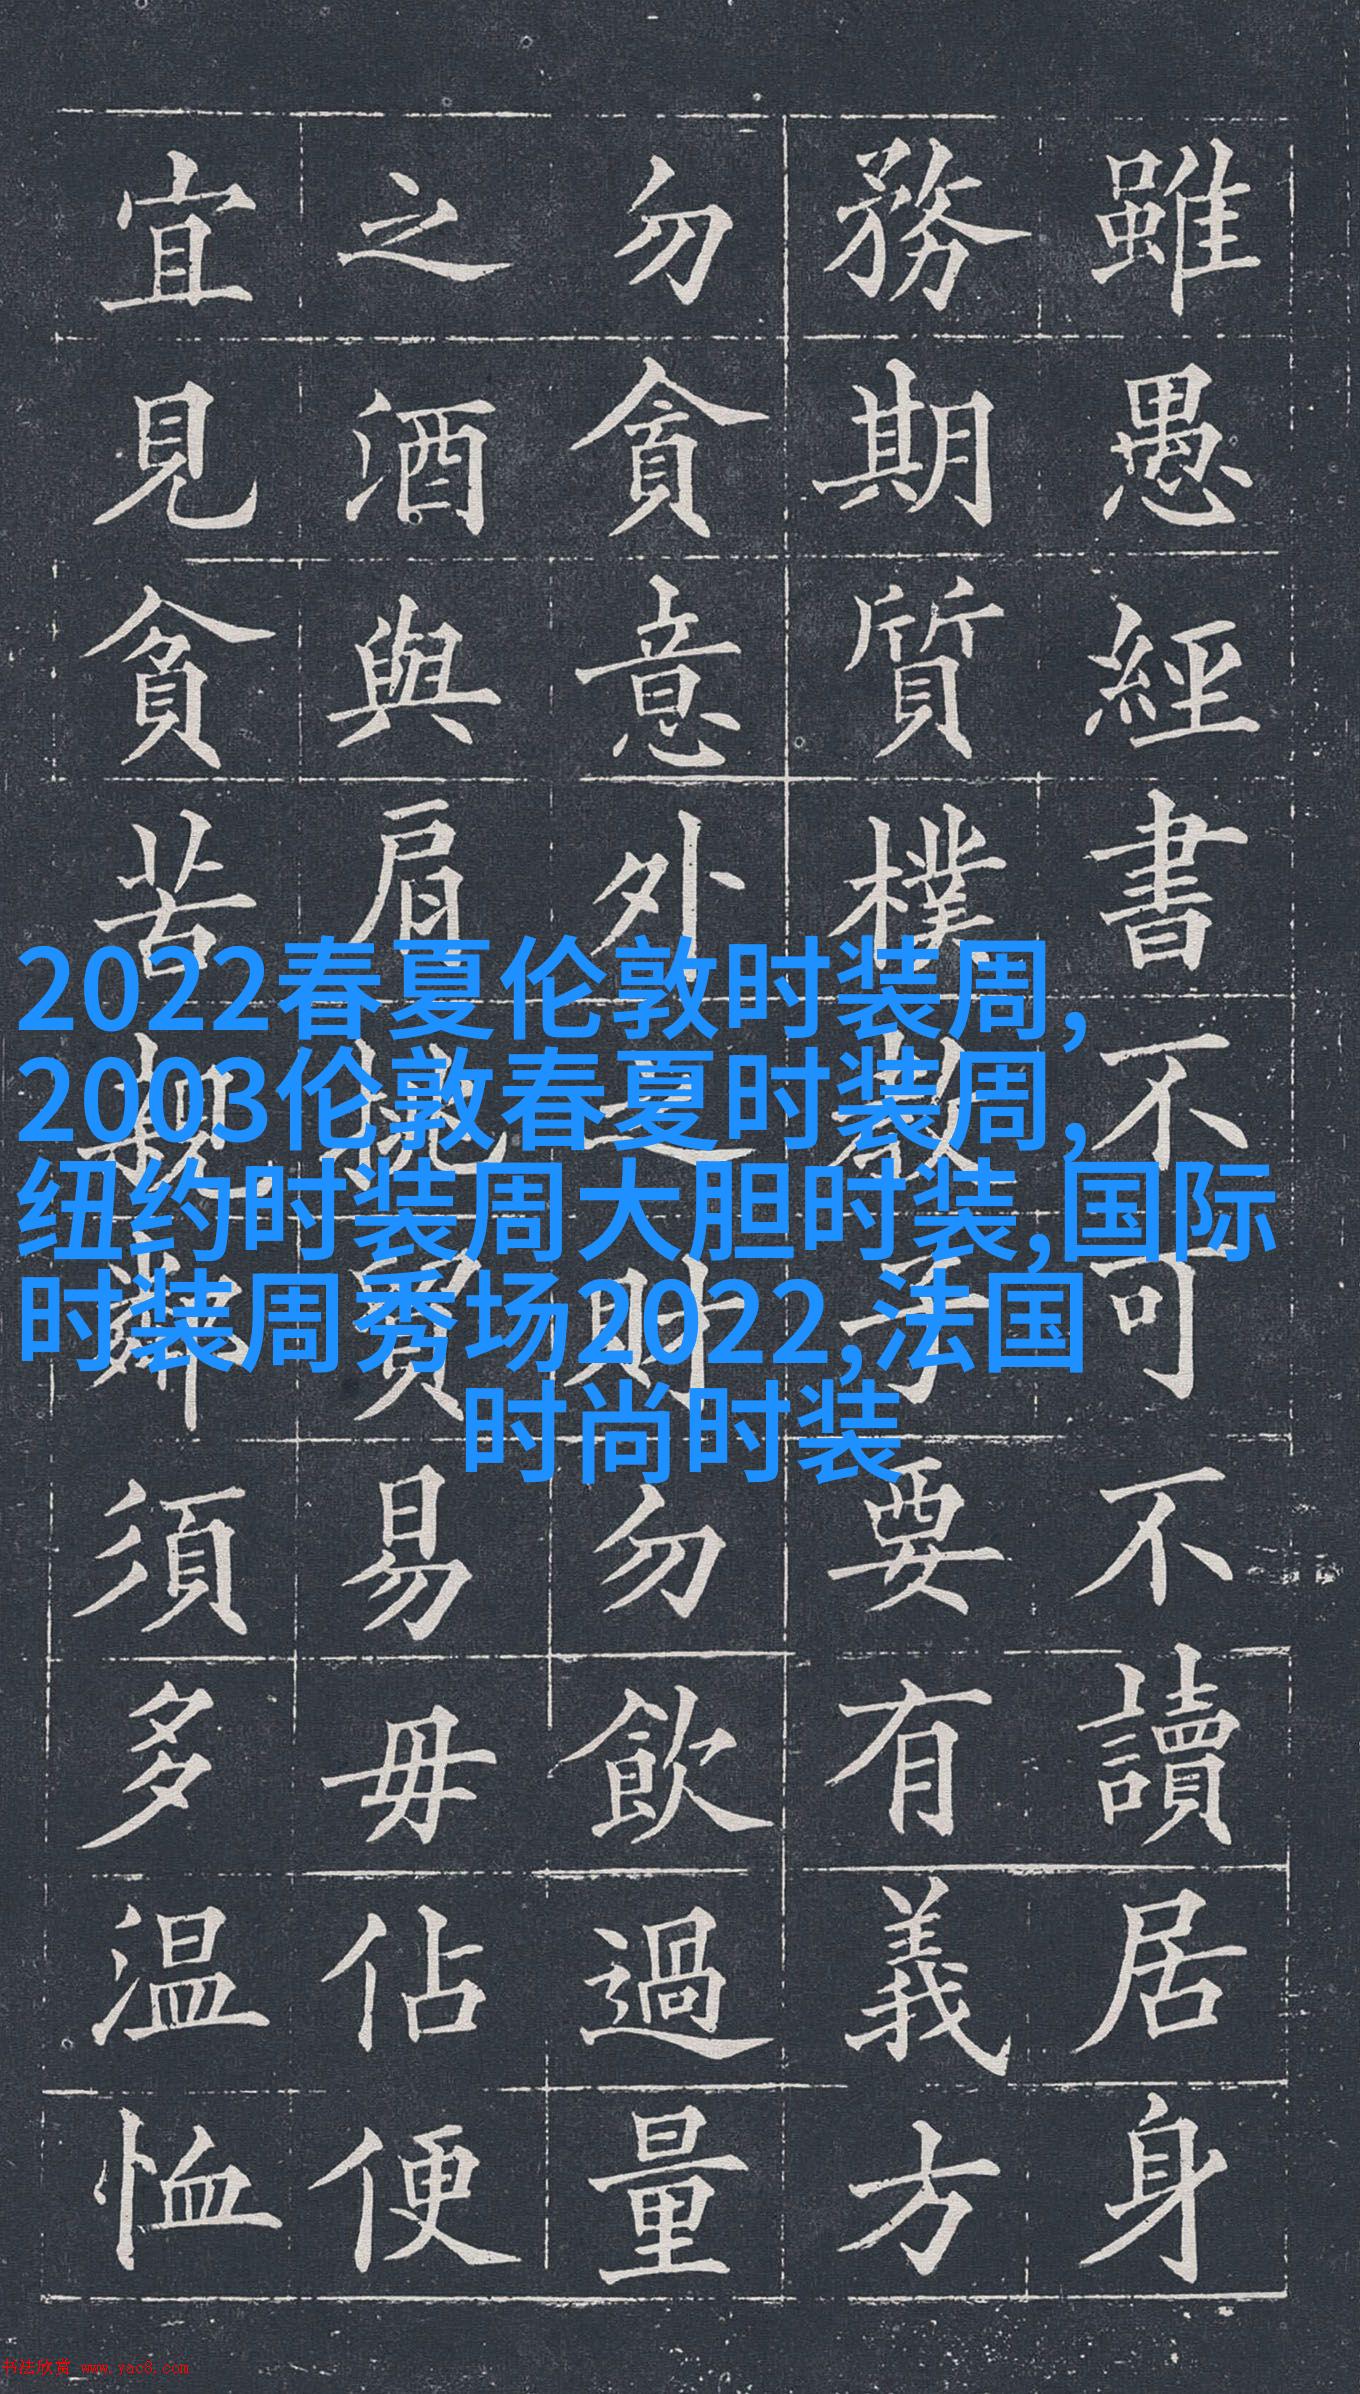 雖愚經書不可不讀居身
務期質樸教子要有義方
勿貪意外之財勿飲過量
之酒與肩挑貿易毋佔便
宜見貧苦親鄰須多温恤
2022春夏伦敦时装周,
2003伦敦春夏时装周,
纽约时装周大胆时装,国际
时装周秀场2022,法国
时尚时装
书法欣赏 www.yac8.com